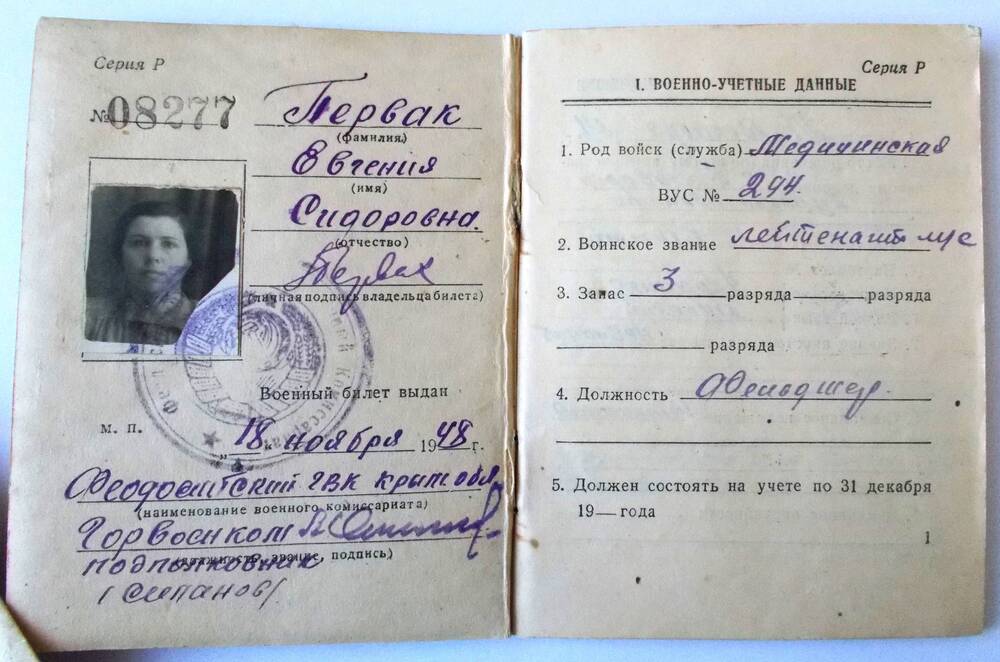 Серия Р
№ 08277
Первак
(фамилия)
Евгения
(имя)
Сидоровна.
(отчество)
Первак
(личная подпись владельца билета)
Военный билет выдан
м. п.
„18“ ноября 1948 г.
Феодосийский ГВК Крым обл
(наименование военного комиссариата)
Горвоенком
(должность, звание, подпись)
подполковник
(Степанов)
Серия Р
I. ВОЕННО-УЧЕТНЫЕ ДАННЫЕ
1. Род войск (служба) Медицинская
ВУС № 294.
2. Воинское звание лейтенант м/с
3. Запас 3 разряда разряда
разряда
4. Должность Фельдшер.
5. Должен состоять на учете по 31 декабря
19— года
1